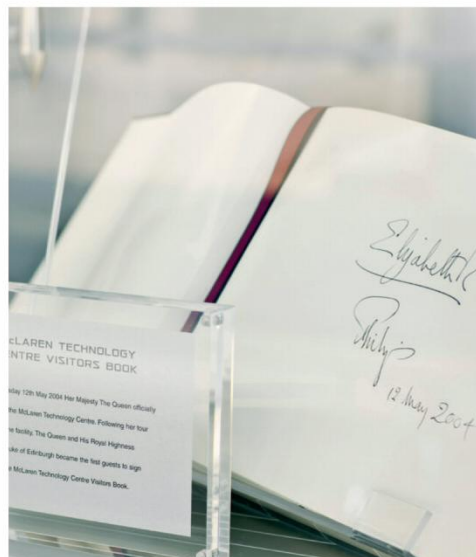 McLAREN TECHNOLOGY
CENTRE VISITORS BOOK
day 12th May 2004 Her Majesty The Queen officially
the McLaren Technology Centre. Following her tour
facility, The Queen and His Royal Highness
uke of Edinburgh became the first guests to sign
McLaren Technology Centre Visitors Book.
Elizabeth R
Philip
12 May 2004